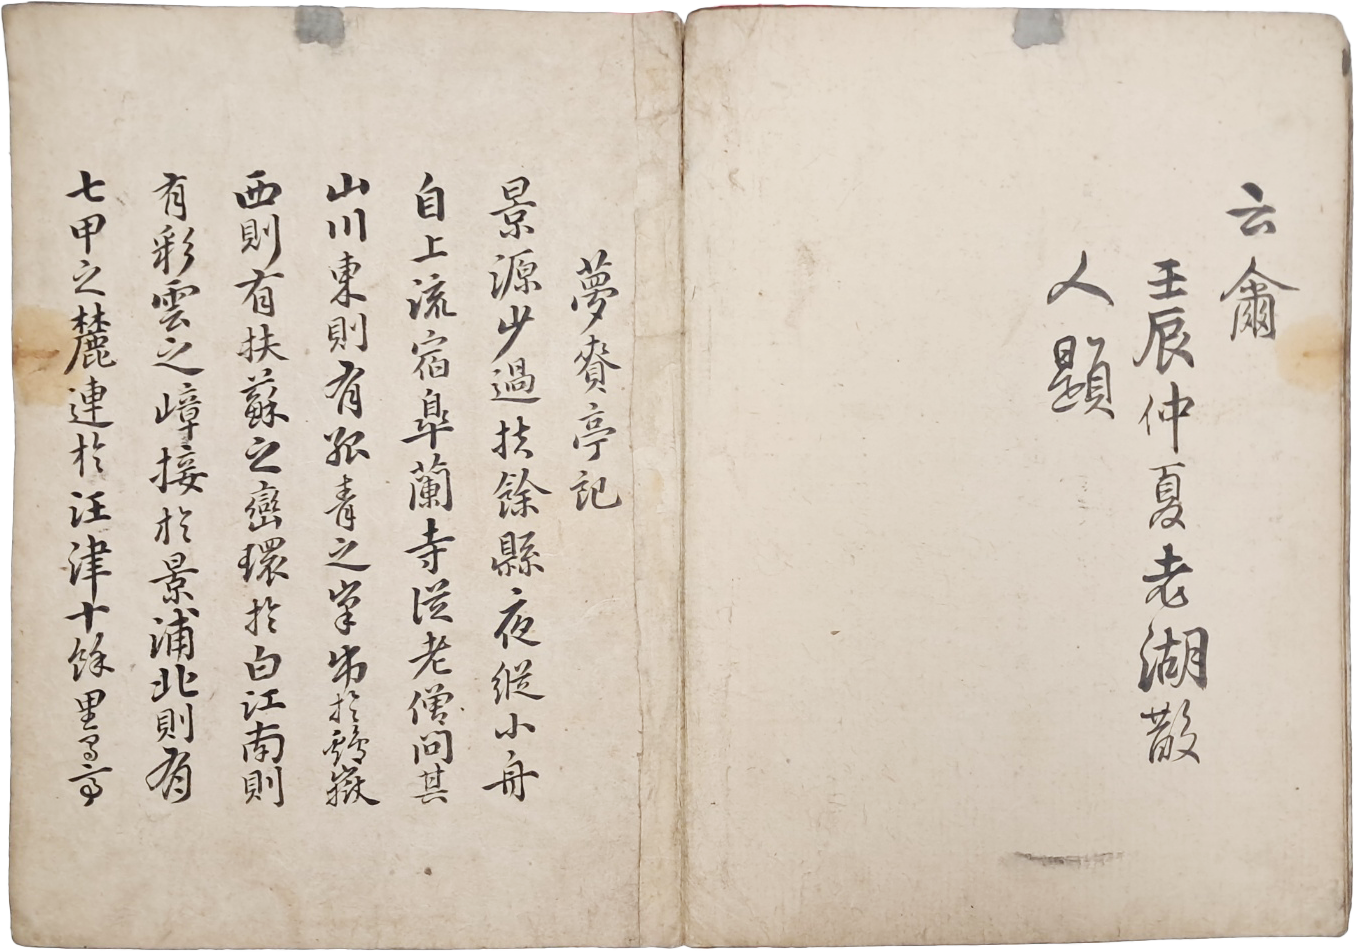 云爾
壬辰仲夏老湖散
人題
夢賚亭記
景源少過扶餘縣夜縱小舟
自上流宿皐蘭寺從老僧問其
山川東則有孤青之峯於鷄嶽
西則有扶蘇之巒環於白江南則
有彩雲之嶂接於景浦北則有
七甲之麓連於汪津十餘里高